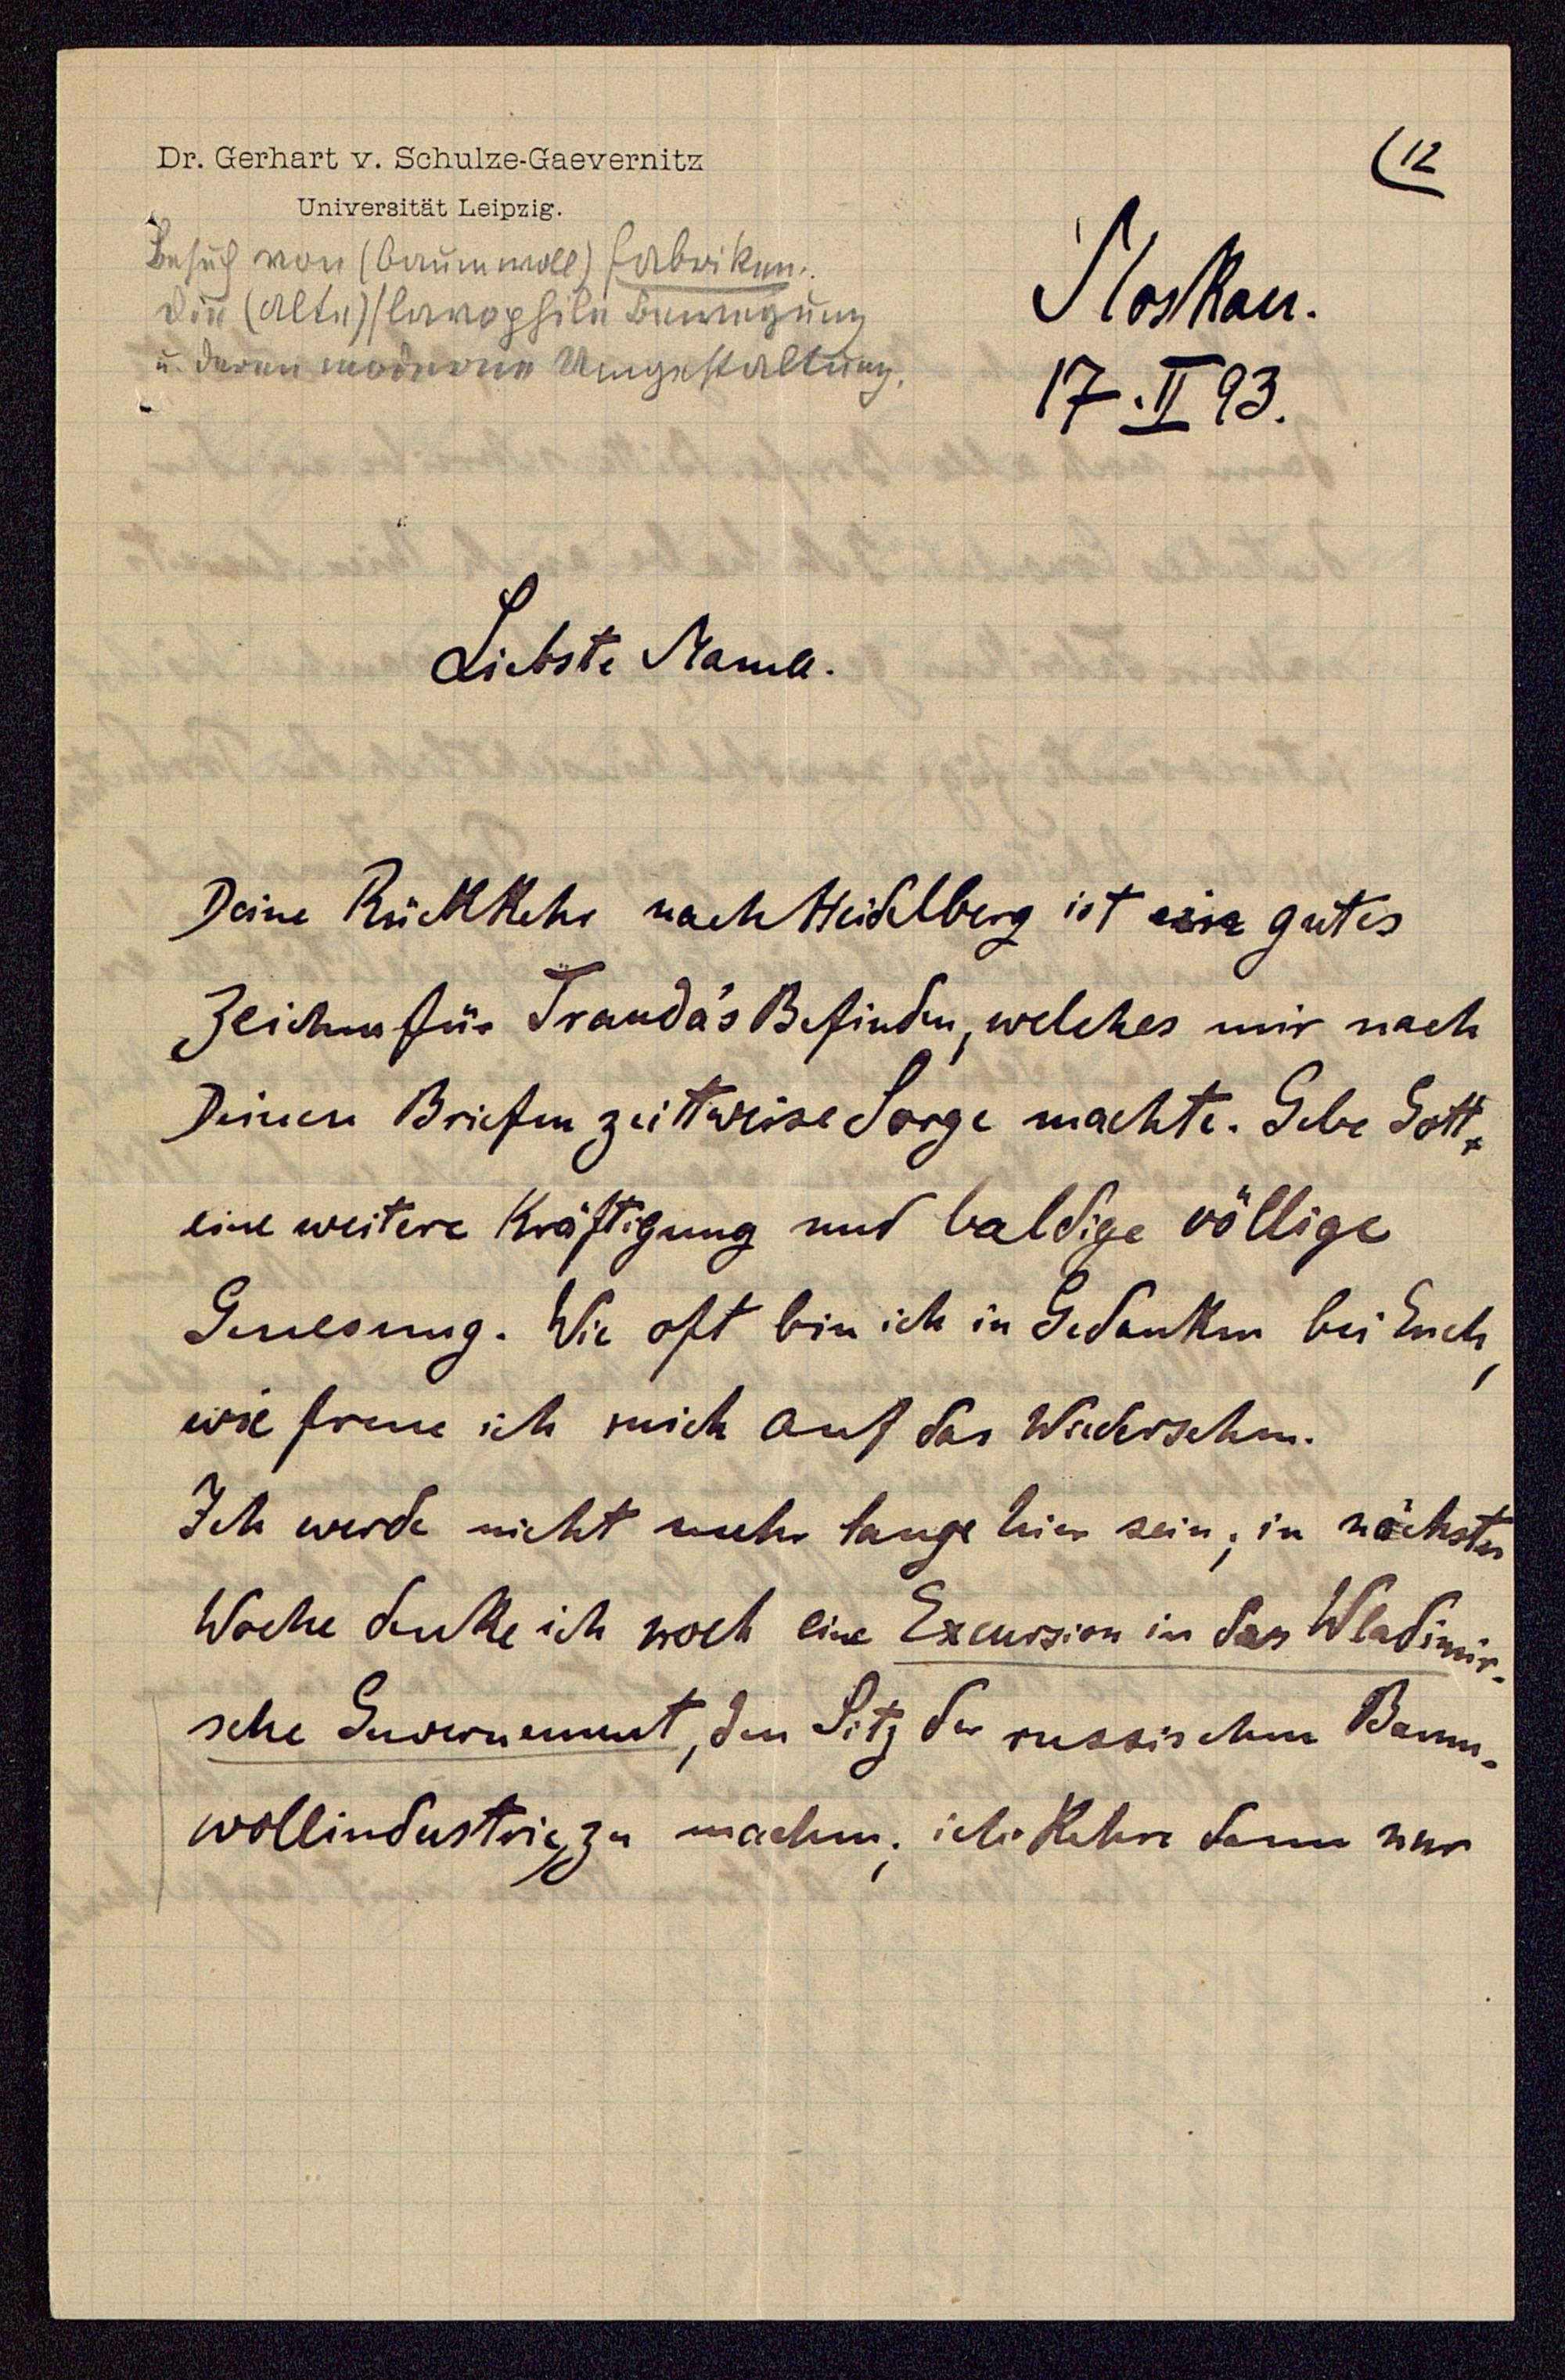 Dr. Gerhart v. Schulze-Gaevernitz
Universität Leipzig.
(12
Besuch von (Baumwoll) fabriken.
Die (alte) slavophile Bewegung
u. deren moderne Umgestaltung.
Moskau.
17. II 93.
Liebste Mama.
Deine Rückkehr nach Heidelberg ist ein gutes
Zeichen für Trauda's Befinden, welches mir nach
Deinen Briefen zeittweise Sorge machte. Gebe Gott
eine weitere Kräftigung und baldige völlige
Genesung. Wie oft bin ich in Gedanken bei Euch,
wie freue ich mich auf das Wiedersehen.
Ich werde nicht mehr lange hier sein; in nächster
Woche denke ich noch eine Excursion in das Wladimir-
sche Guvernement, den Sitz der russischen Baum-
wollindustrie, zu machen; ich kehre dann nur